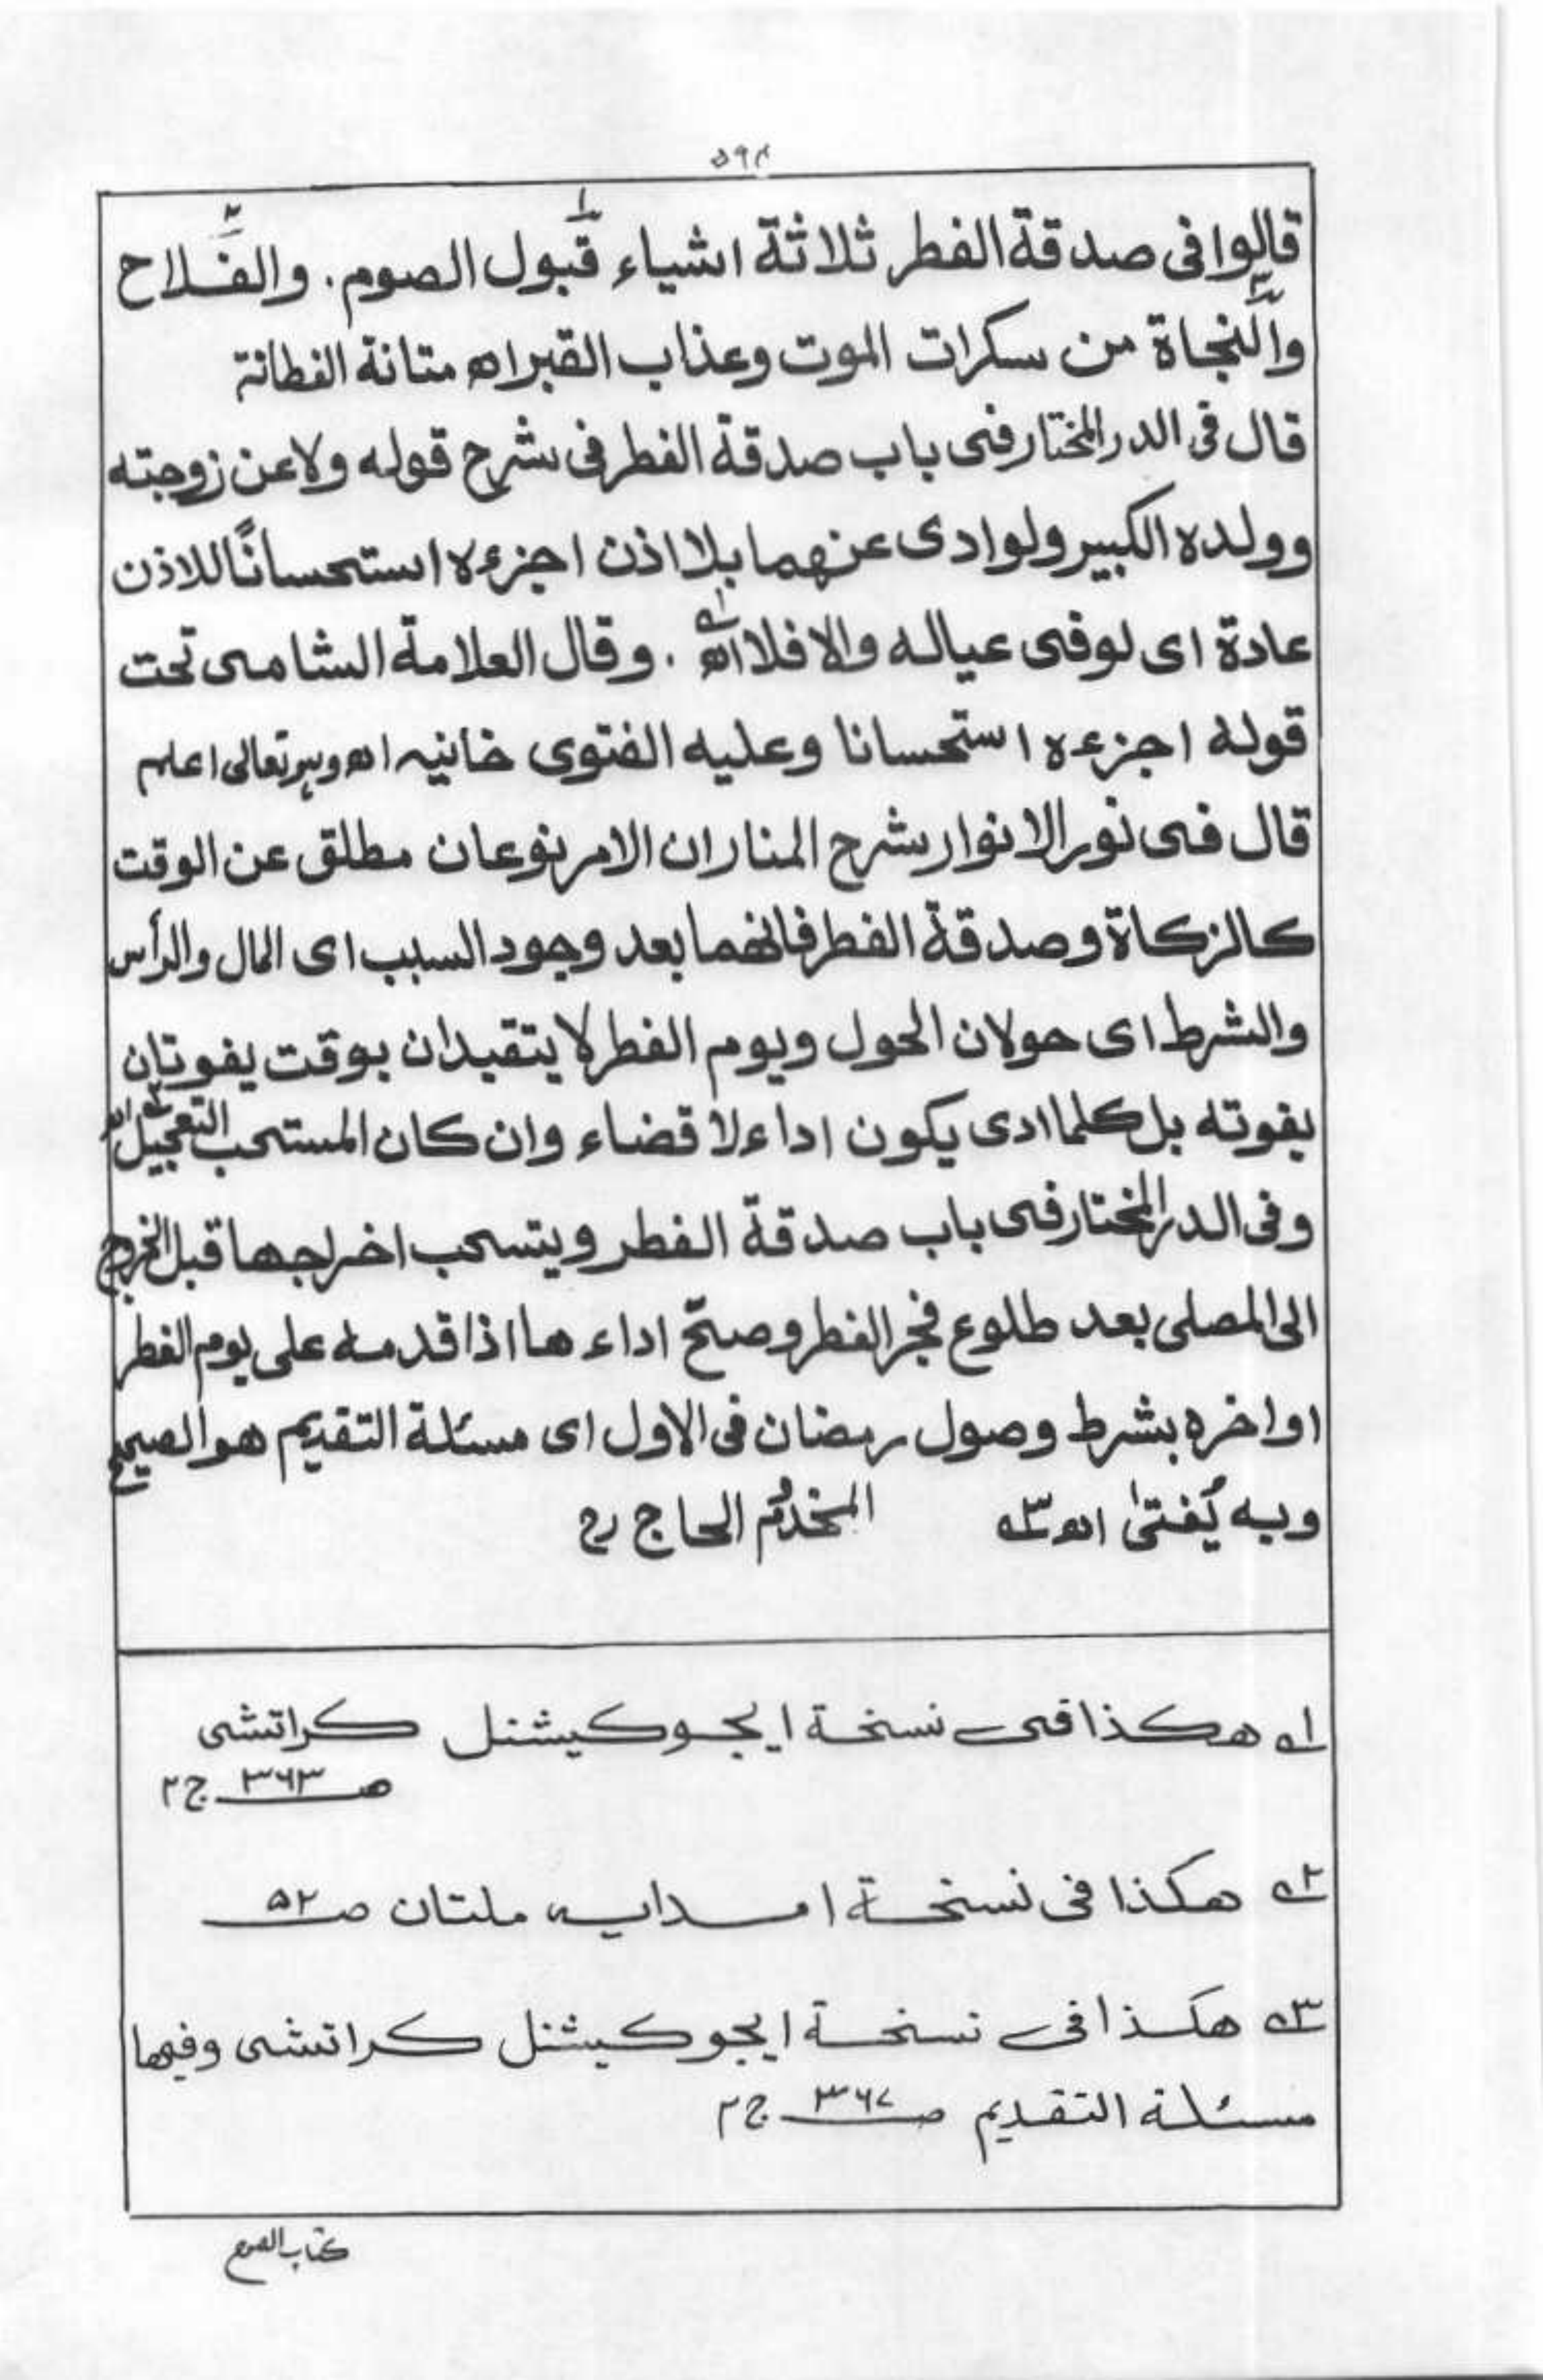 ٥٩٤
قالوا فى صدقة الفطر ثلاثة اشياء قبول الصوم. والفلاح
والنجاة من سكرات الموت وعذاب القبر اھ متانة الفطانة
قال فى الدر المختار فى باب صدقة الفطر فى شرح قوله ولا عن زوجته
وولده الكبير ولو ادى عنهما بلا اذن اجزءه استحسانًا للاذن
عادة اى لو فى عياله والا فلا اھ ١ . وقال العلامة الشامى تحت
قوله اجزءه استحسانا وعليه الفتوى خانيه اھ تعالى اعلم
قال فى نور الانوار شرح المنار ان الامر نوعان مطلق عن الوقت
كالزكاة وصدقة الفطر فانهما بعد وجود السبب اى المال والرأس
والشرط اى حولان الحول ويوم الفطر لا يتقيدان بوقت يفوتان
بفوته بل كلما ادى يكون اداء لا قضاء وان كان المستحب التعجيل اھ ٢
وفى الدر المختار فى باب صدقة الفطر ويتسحب اخراجها قبل الخروج
الى المصلى بعد طلوع فجر الفطر وصحّ اداء ها اذا قدمه على يوم الفطر
او اخره بشرط وصول رمضان فى الاول اى مسئلة التقديم هو الصحيح
وبه يُفتىٰ اھ ٣ المخدوم الحاج رح
١ هكذا فى نسخة ايجوكيشنل كراتشى
صـ ٣٦٣ ج ٢
٢ هكذا فى نسخة امدايه ملتان صـ ٥٢
٣ هكذا فى نسخة ايجوكيشنل كراتشى وفيها
مسئلة التقديم صـ ٣٦٧ ج ٢
كتاب الصوم